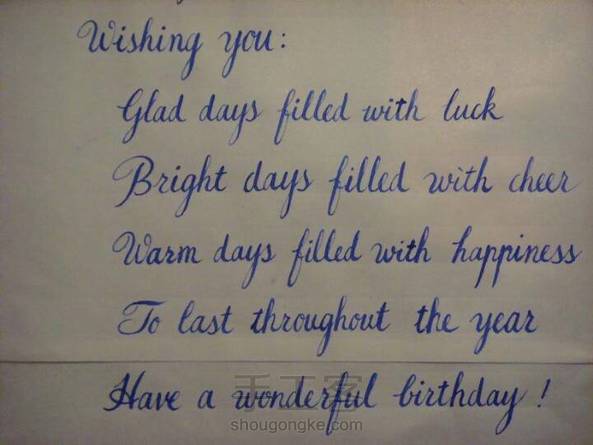 Wishing you:
Glad days filled with luck
Bright days filled with cheer
Warm days filled with happiness
To last throughout the year
Have a wonderful birthday!
手工客
shougongke.com